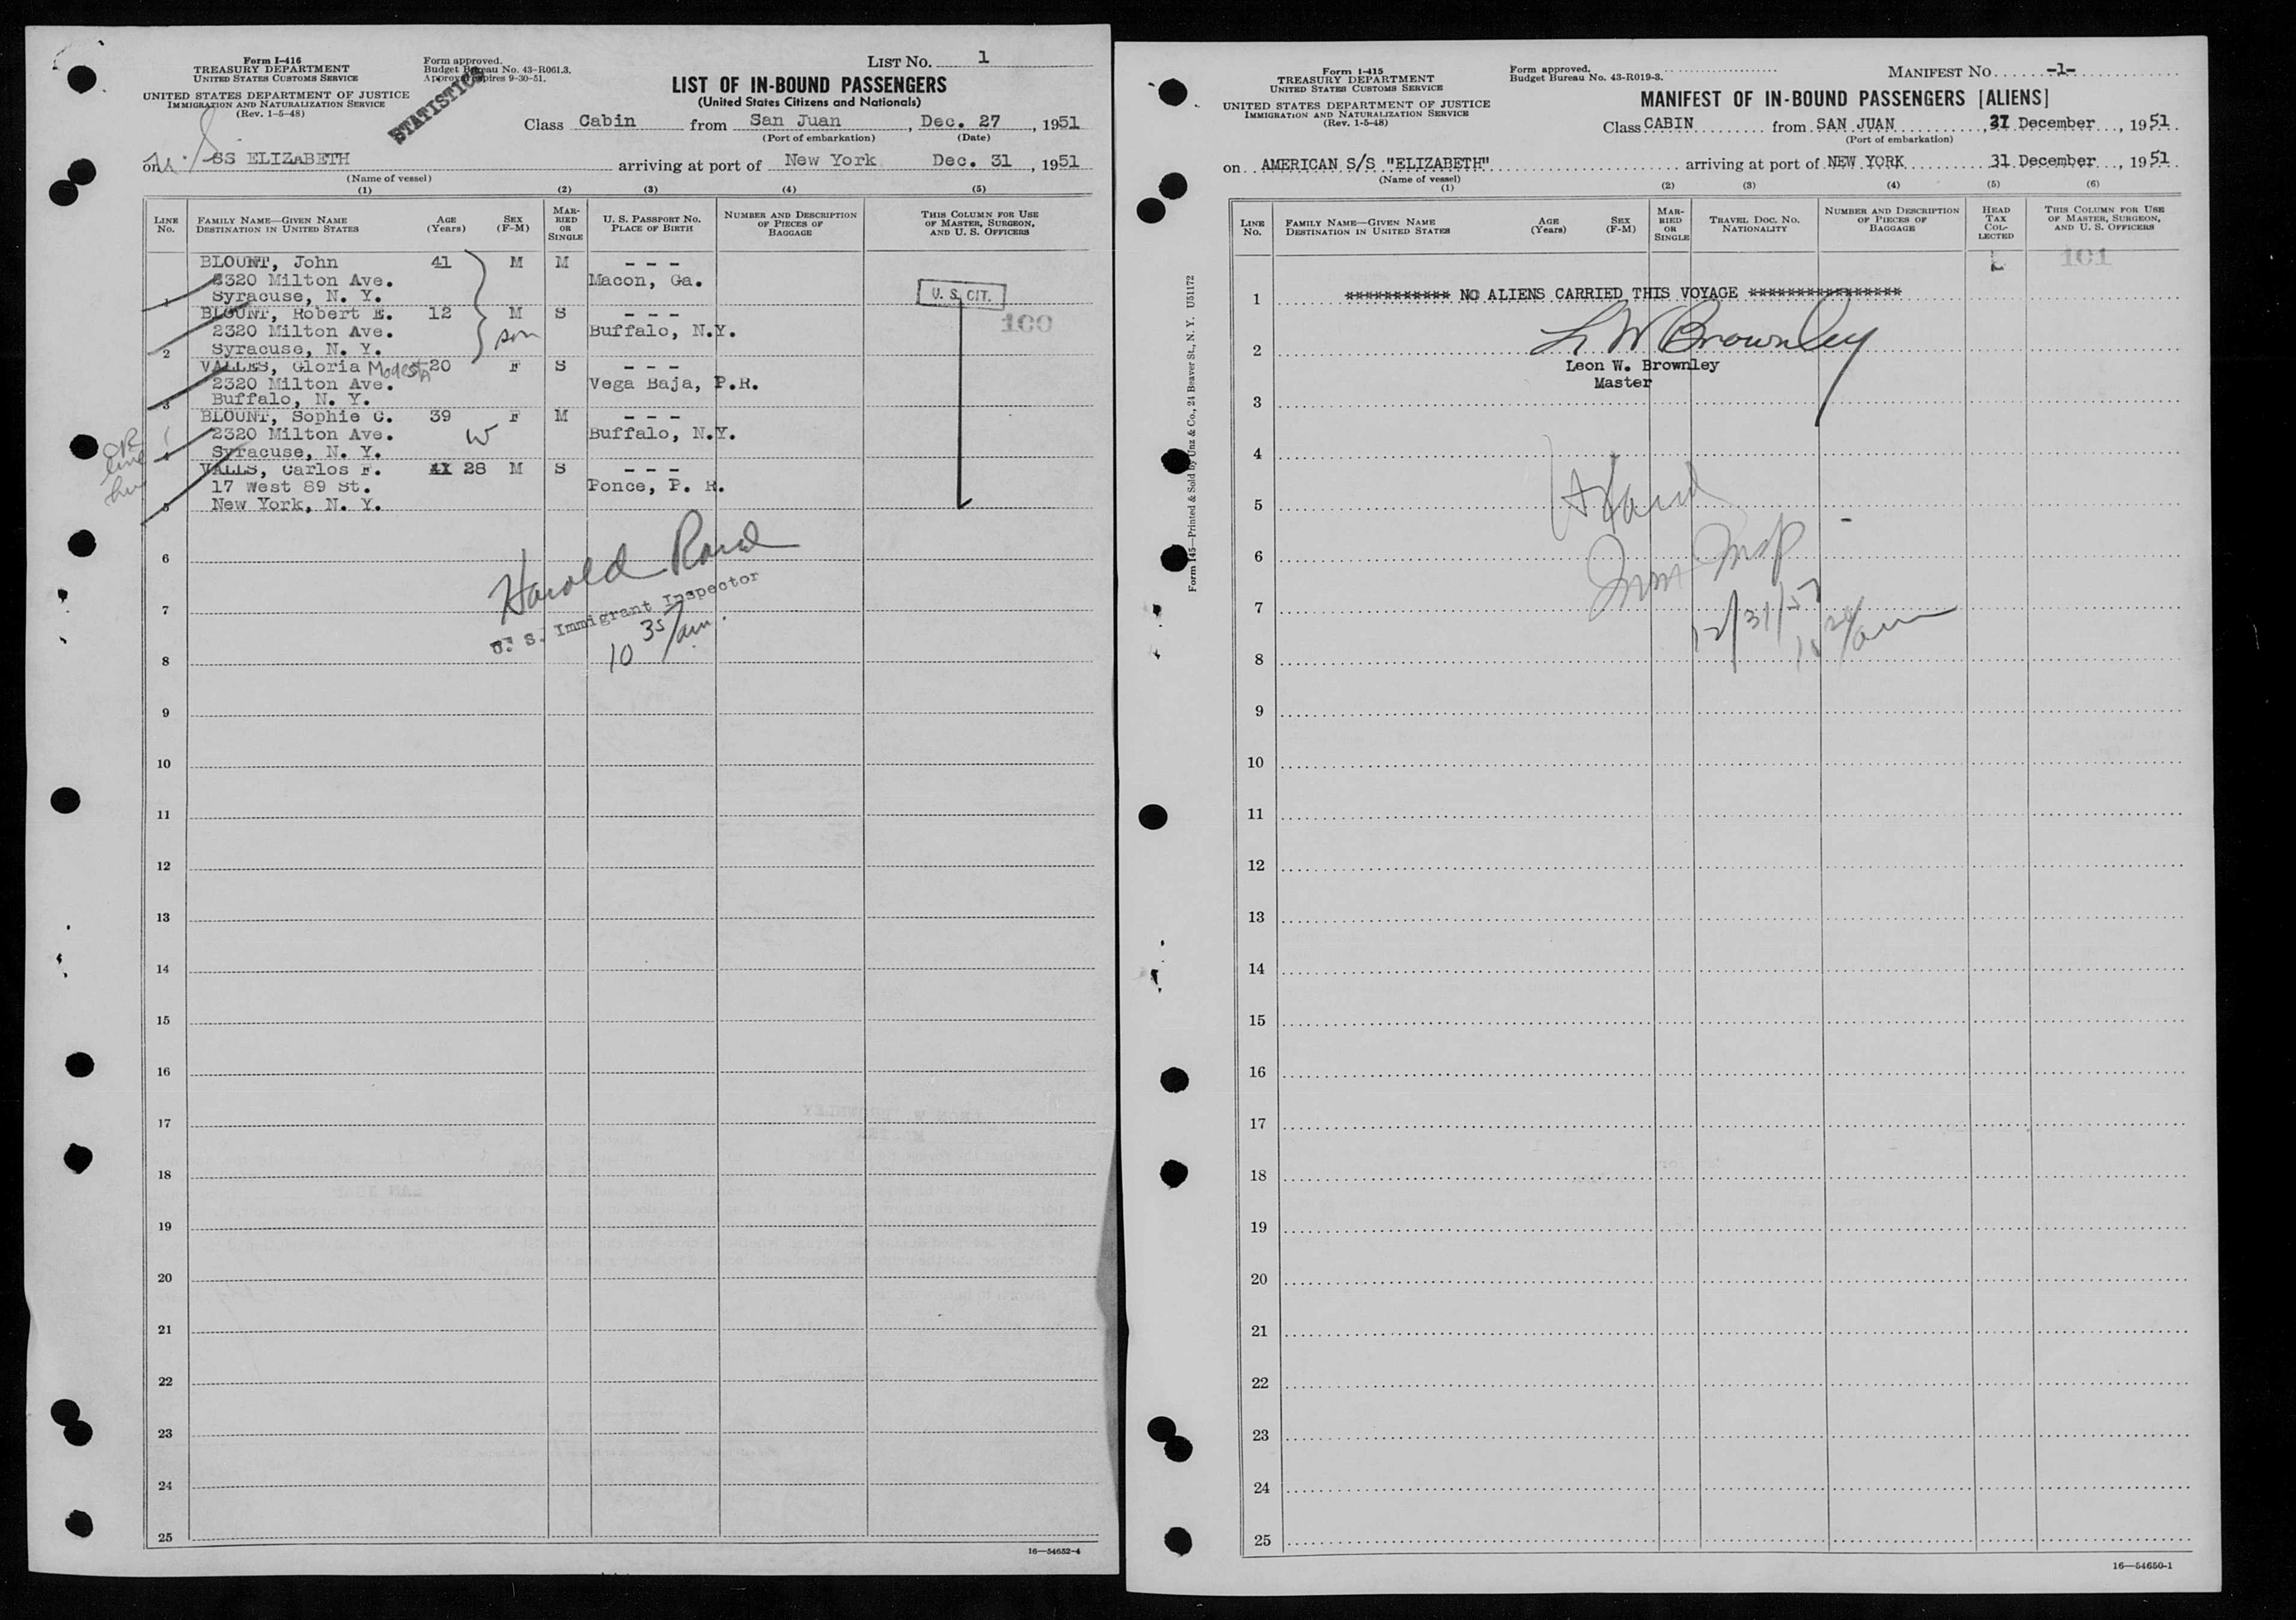 Form I-416
TREASURY DEPARTMENT
UNITED STATES CUSTOMS SERVICE
UNITED STATES DEPARTMENT OF JUSTICE
IMMIGRATION AND NATURALIZATION SERVICE
(Rev. 1-5-48)
Form approved.
Budget Bureau No. 43-R061.3.
Approval expires 9-30-51.
STATISTICS
LIST No. 1
LIST OF IN-BOUND PASSENGERS
(United States Citizens and Nationals)
Class Cabin from San Juan, Dec. 27, 1951
(Port of embarkation) (Date)
on SS ELIZABETH arriving at port of New York Dec. 31, 1951
(Name of vessel)
(1) (2) (3) (4) (5)
LINE No.
FAMILY NAME—GIVEN NAME DESTINATION IN UNITED STATES
AGE (Years)
SEX (F-M)
MARRIED OR SINGLE
U. S. PASSPORT NO. PLACE OF BIRTH
NUMBER AND DESCRIPTION OF PIECES OF BAGGAGE
THIS COLUMN FOR USE OF MASTER, SURGEON, AND U. S. OFFICERS
BLOUNT, John 41 M M - - -
2320 Milton Ave. Macon, Ga.
1 Syracuse, N. Y. U. S. CIT.
BLOUNT, Robert E. 12 M S - - - 100
2320 Milton Ave. son Buffalo, N.Y.
2 Syracuse, N. Y.
VALLES, Gloria Modesta 20 F S - - -
2320 Milton Ave. Vega Baja, P.R.
3 Buffalo, N. Y.
BLOUNT, Sophie C. 39 F M - - -
2320 Milton Ave. W Buffalo, N.Y.
4 Syracuse, N. Y.
VALLS, Carlos F. 28 M S - - -
17 West 89 St. Ponce, P. R.
5 New York, N. Y.
6
Harold Rand
7
U. S. Immigrant Inspector
10 35/am.
8
9
10
11
12
13
14
15
16
17
18
19
20
21
22
23
24
25
16—54652-4
Form I-415
TREASURY DEPARTMENT
UNITED STATES CUSTOMS SERVICE
UNITED STATES DEPARTMENT OF JUSTICE
IMMIGRATION AND NATURALIZATION SERVICE
(Rev. 1-5-48)
Form approved.
Budget Bureau No. 43-R019-3.
MANIFEST NO -1-
MANIFEST OF IN-BOUND PASSENGERS [ALIENS]
Class CABIN from SAN JUAN, 27 December, 1951
(Port of embarkation)
on AMERICAN S/S "ELIZABETH" arriving at port of NEW YORK 31 December, 1951
(Name of vessel)
(1) (2) (3) (4) (5) (6)
LINE No.
FAMILY NAME—GIVEN NAME DESTINATION IN UNITED STATES
AGE (Years)
SEX (F-M)
MARRIED OR SINGLE
TRAVEL DOC. NO. NATIONALITY
NUMBER AND DESCRIPTION OF PIECES OF BAGGAGE
HEAD TAX COLLECTED
THIS COLUMN FOR USE OF MASTER, SURGEON, AND U. S. OFFICERS
101
1 *********** NO ALIENS CARRIED THIS VOYAGE ****************
L W Brownley
2
Leon W. Brownley
Master
3
4
5
H Rand
6
Imm Insp
7
12/31/51
8
9
10
11
12
13
14
15
16
17
18
19
20
21
22
23
24
25
16—54650-1